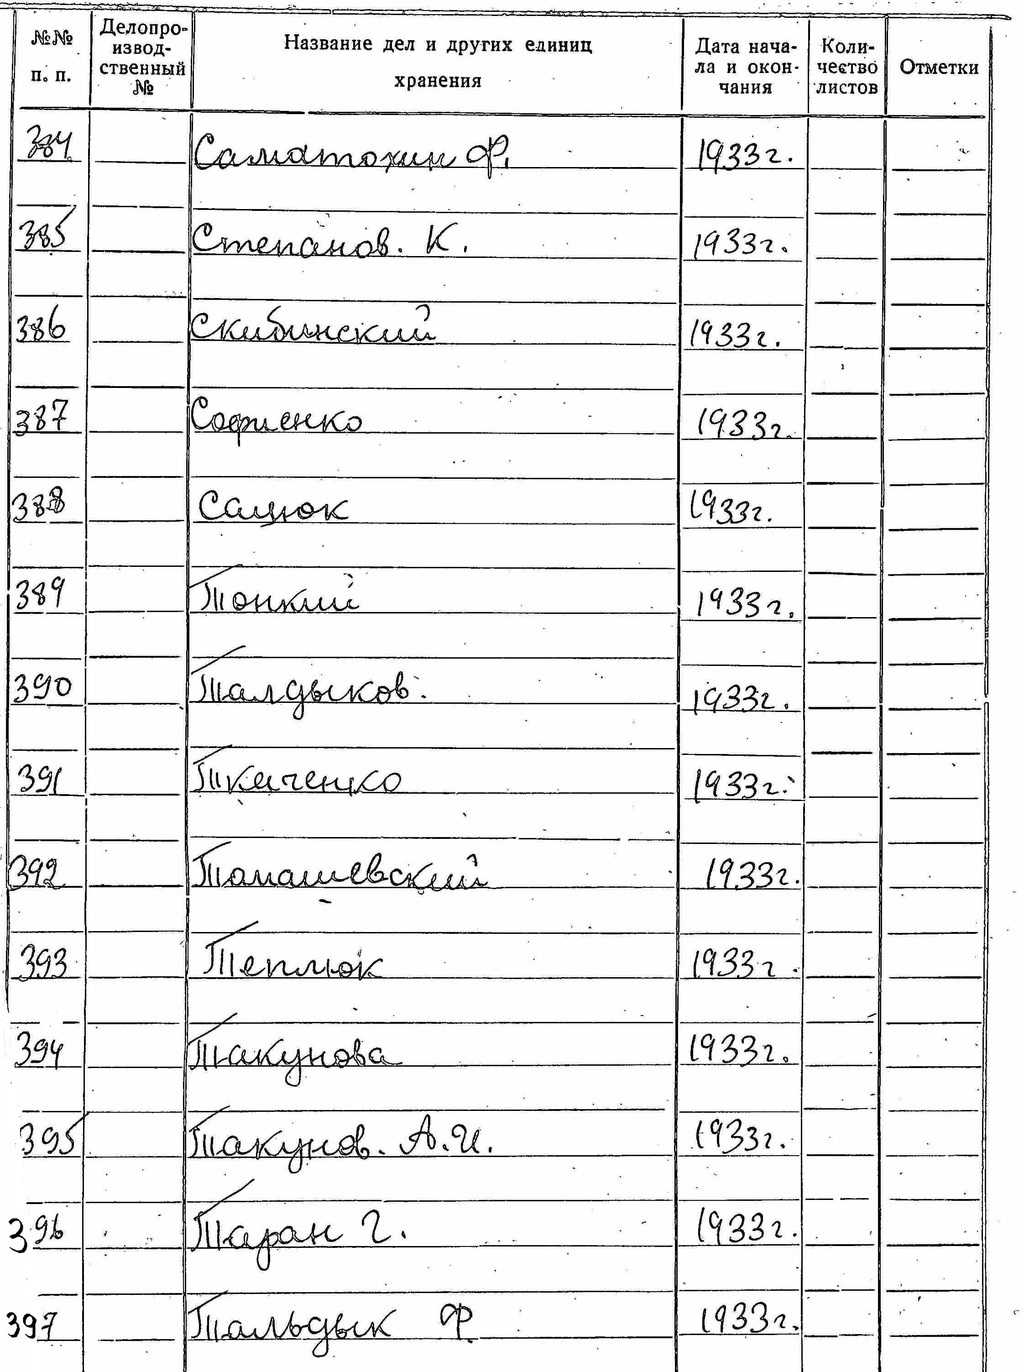 №№ п. п. Делопроизвод-ственный № Название дел и других единиц хранения Дата нача-ла и окон-чания Коли-чество листов Отметки
384 Саматохин Ф. 1933г.
385 Степанов. К. 1933г.
386 Скибинский 1933г.
387 Софиенко 1933г.
388 Сацюк 1933г.
389 Тонкий 1933г.
390 Талдыков. 1933г.
391 Ткаченко 1933г.
392 Томашевский 1933г.
393 Теплюк 1933г.
394 Такунова 1933г.
395 Такунов. А.И. 1933г.
396 Таран Г. 1933г.
397 Тальдык Ф. 1933г.